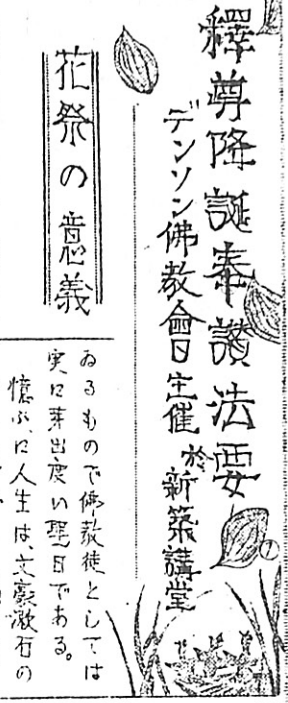 釋尊降誕奉讃法要
デンソン佛教會主催 於新築講堂
花祭の意義
ゐるもので佛教徒としては
実に芽出度い聖日である。
憶ふに人生は、文豪漱石の